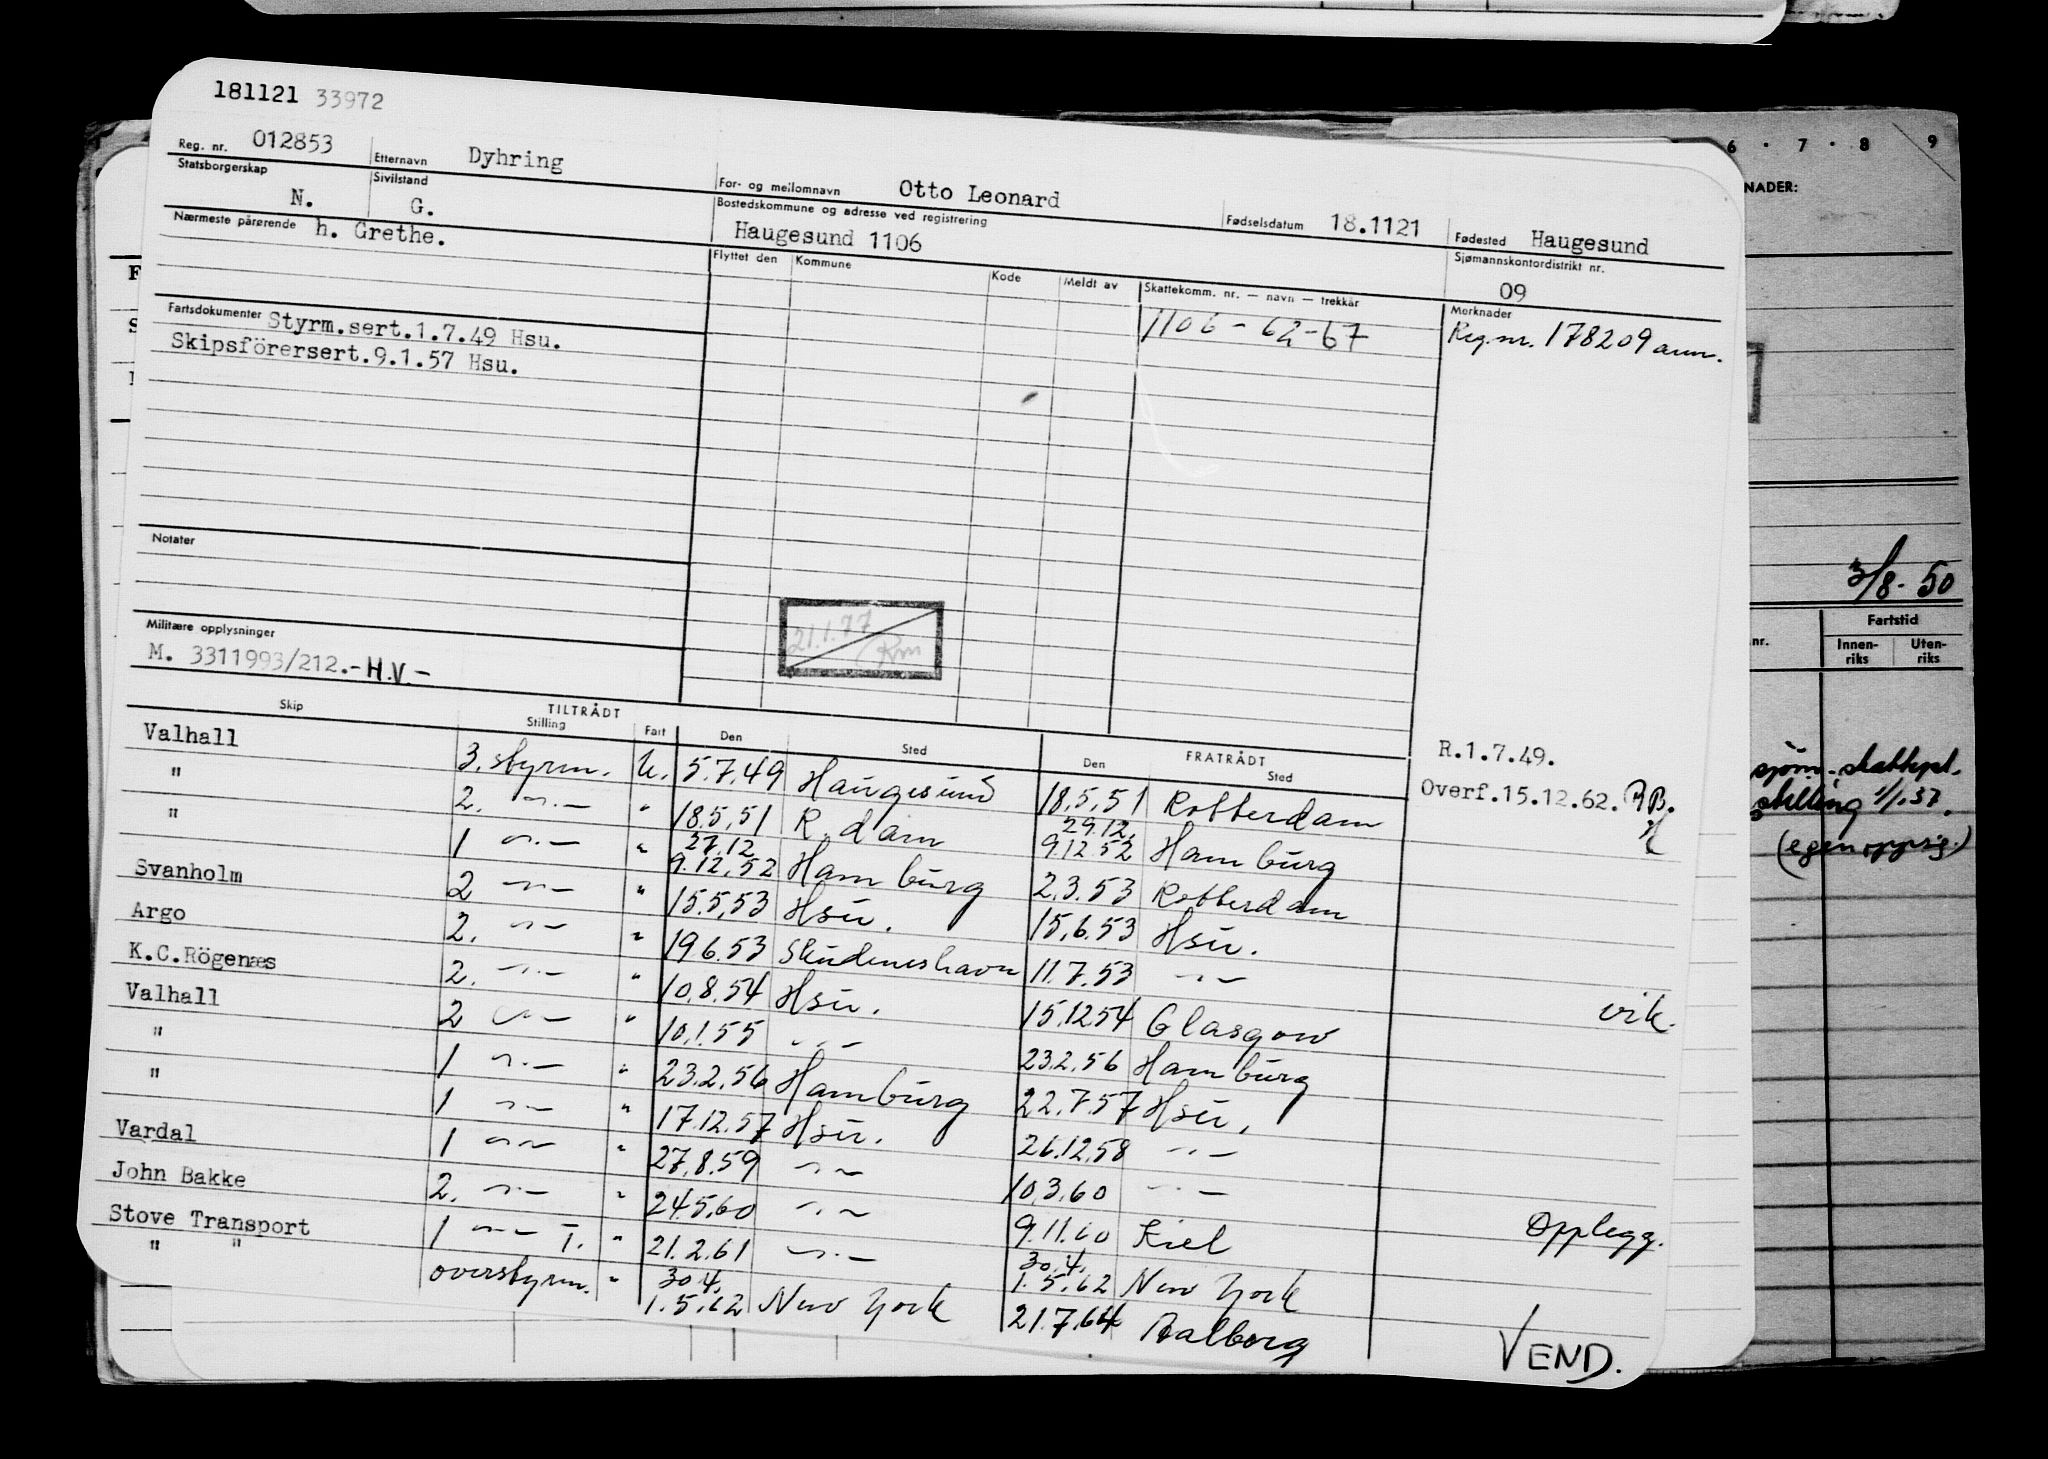 181121 33972
Reg. nr. 012853 Etternavn Dyhring For- og mellomnavn Otto Leonard Fødselsdatum 18.1121 Fødested Haugesund
Statsborgerskap N. Sivilstand G. Bostedskommune og adresse ved registrering Haugesund 1106 Sjømannskontordistrikt nr. 09
Nærmeste pårørende h. Grethe.
Flyttet den Kommune Kode Meldt av Skattekomm. nr. — navn — trekkår Merknader
1106 - 62-67 Reg.nr. 178209 ann.
Fartsdokumenter Styrm.sert.1.7.49 Hsu.
Skipsförersert.9.1.57 Hsu.
Notater
21.1.77
Rm
Militære opplysninger
M. 3311993/212.-H.V.-
TILTRÅDT FRATRÅDT
Skip Stilling Fart Den Sted Den Sted
R.1.7.49.
Overf.15.12.62.
Valhall 3. styrm. U. 5.7.49 Haugesund 18.5.51 Rotterdam
" 2. -"- " 18.5.51 R.dam 29.12. 9.12.52 Hamburg
" 1 -"- " 27.12 9.12.52 Hamburg 2.3.53 Rotterdam
Svanholm 2 -"- " 15.5.53 Hsu. 15.6.53 Hsu.
Argo 2. -"- " 19.6.53 Skudeneshavn 11.7.53 -"-
K.C.Rögenæs 2. -"- " 10.8.54 Hsu. 15.12.54 Glasgow vik.
Valhall 2 -"- " 10.1.55 -"- 23.2.56 Hamburg
" 1 -"- " 23.2.56 Hamburg 22.7.57 Hsu.
" 1 -"- " 17.12.57 Hsu. 26.12.58 -"-
Vardal 1 -"- " 27.8.59 -"- 10.3.60 -"-
John Bakke 2. -"- " 24.5.60 -"- 9.11.60 Kiel Opplegg.
Stove Transport 1 -"- T. " 21.2.61 -"- 30.4. 1.5.62 New York
" " overstyrm. " 30.4. 1.5.62 New York 21.7.64 Aalborg
VEND.
6 · 7 · 8 9
NADER:
3/8-50
nr. Fartstid
Innen-riks Uten-riks
sjøm.
stilling 1/1.57.